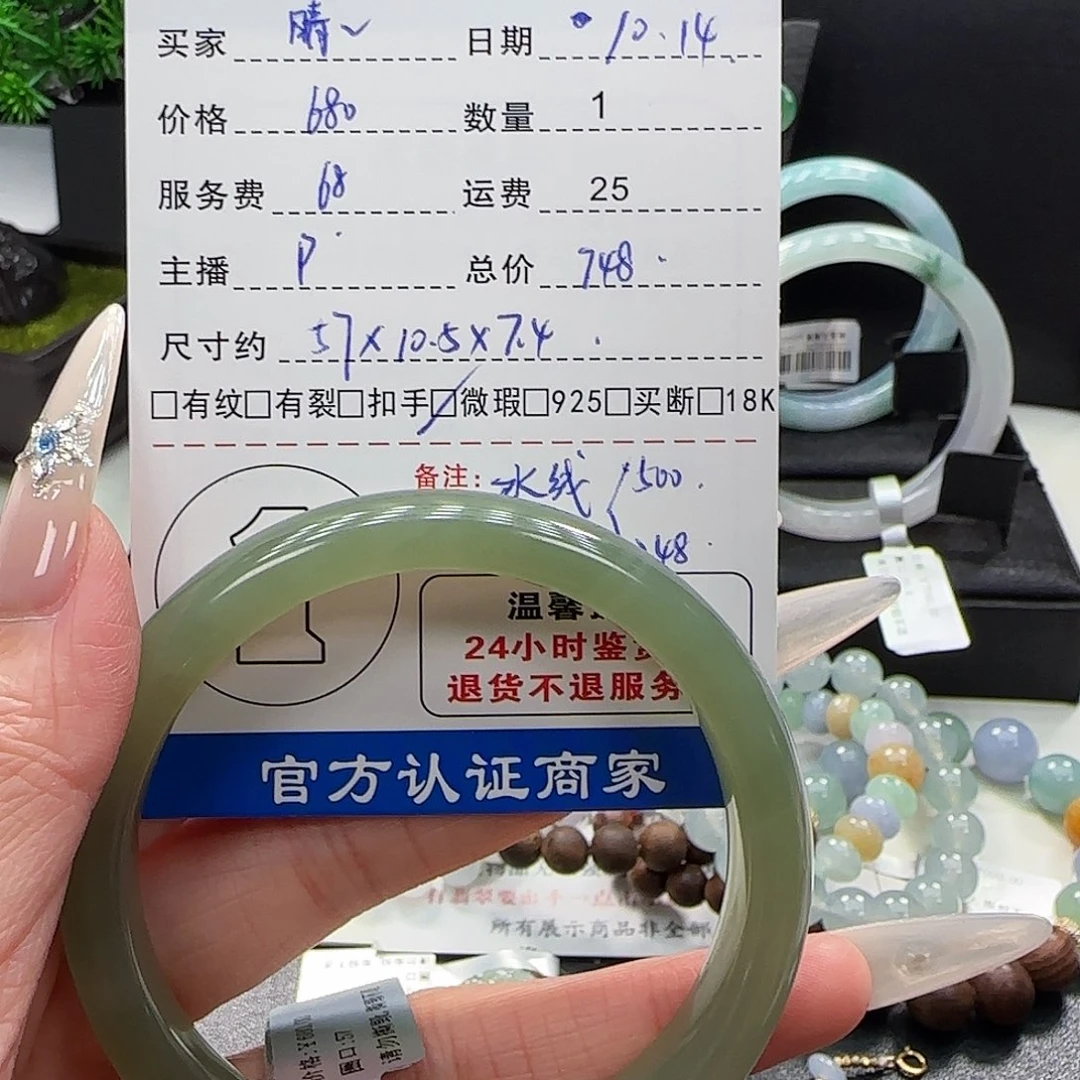 买家 晴 日期 10.14
价格 680 数量 1
服务费 68 运费 25
主播 P 总价 748
尺寸约 57×10.5×7.4
□有纹□有裂□扣手□微瑕□925□买断□18K
备注: 水线 1500
48
温馨
24小时鉴
退货不退服务
官方认证商家
所有展示商品非全部
圈口:57